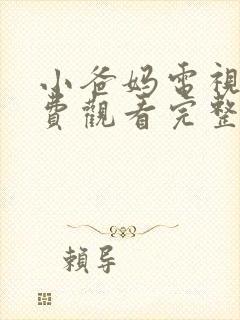 小爸妈電視
費觀看完整
賴导